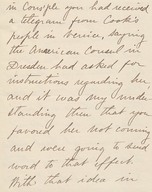 in Consple you had received
a telegram from Cook's
people in Venice, saying
the American Consul in
Dresden had asked for
instructions regarding her
and it was my under
standing then that you
favored her not coming
and were going to send
word to that effect.
With that idea in